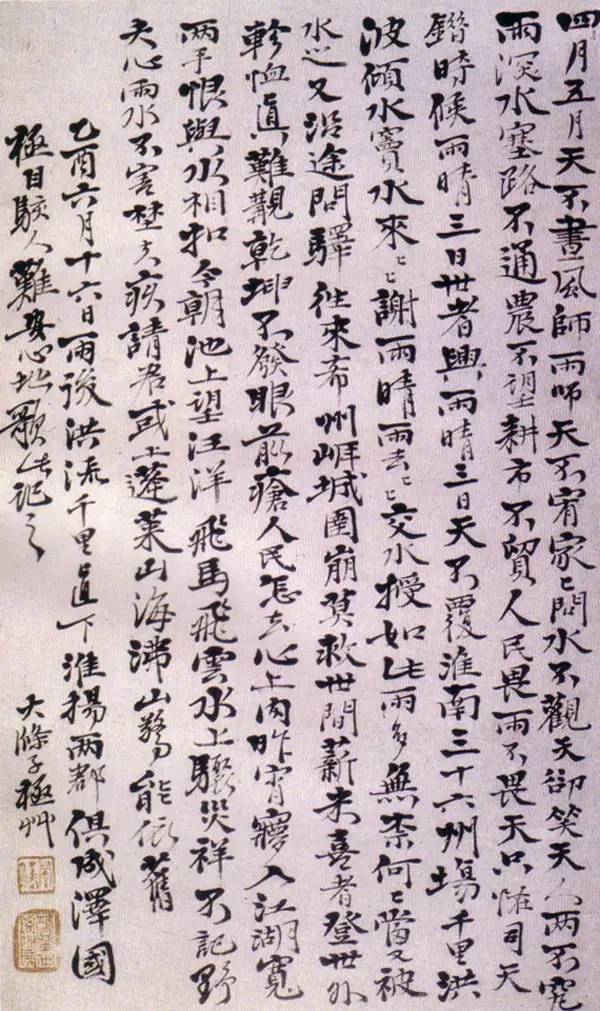 四月五月天不晝風師雨師天不宥家々問水不觀天卻笑天人兩不究
雨深水塞路不通農不望耕市不貿人民畏雨不畏天只恠司天
時候雨晴三日世者興雨晴三日天不覆淮南三十六州塲千里洪
波傾水竇水來々謝雨晴雨去々交水授如此雨多無柰何々當又被
水又沿途問驛往來希州城圍崩莫救世間薪米喜者登世外
軫恤真難覯乾坤不發眼前瘡人民怎去心上肉昨宵寱入江湖寬
兩手恨與水相扣今朝池上望汪洋飛馬飛雲水上驟災祥不記野
夫心雨水不害埜夫疚請君或上蓬萊山海沸山驚能依舊
乙酉六月十六日雨後洪流千里直下淮揚兩郡俱成澤國
極目駭人難安心地歌此記之
大滌子極艸